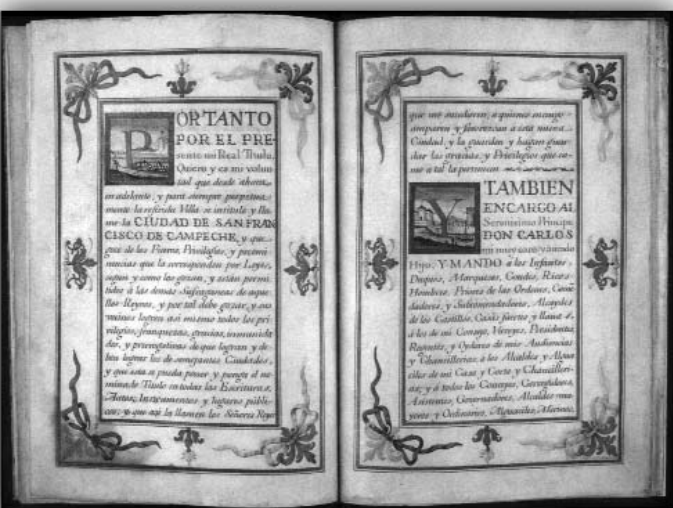 POR TANTO
POR EL PRE-
sente mi Real Titulo,
Quiero y es mi volun
tad que desde ahora
en adelante, y para siempre perpetua
mente la referida Villa se intitule y lla
me la CIUDAD DE SAN FRAN
CISCO DE CAMPECHE, y que
goze de los Fueros, Privilegios, y preemi
nencias que la corresponden por Leyes,
segun y como los gozan, y están permi
tidos á las demás Sufraganeas de aque
llos Reynos, y por tal debe gozar, y sus
vecinos logren así mismo todos los pri
vilegios, franquezas, gracias, inmunida
des, y prerrogativas de que logran y de
ben lograr los de semejantes Ciudades,
y que esta se pueda poner y ponga el no
minado Titulo en todas las Escrituras,
Autos, Instrumentos y lugares públi
cos; y que así la llamen los Señores Reyes
que me sucedieren, a quienes encargo
amparen y favorezcan a esta nueva
Ciudad, y la guarden y hagan guar
dar las gracias, y Privilegios que co
mo a tal la pertenecen
Y TAMBIEN
ENCARGO AL
Serenisimo Principe
DON CARLOS
mi muy caro y amado
Hijo; Y MANDO á los Infantes,
Duques, Marqueses, Condes, Ricos-
Hombres, Priores de las Ordenes, Comen
dadores, y Subcomendadores, Alcaydes
de los Castillos, Casas fuertes, y llanas,
á los de mi Consejo, Vireyes, Presidentes
Regentes, y Oydores de mis Audiencias
y Chancillerias, á los Alcaldes y Algua
ciles de mi Casa y Corte, y Chancilleri-
as; y á todos los Concejos, Corregidores,
Asistentes, Governadores, Alcaldes ma-
yores y Ordinarios, Alguaciles, Merinos,